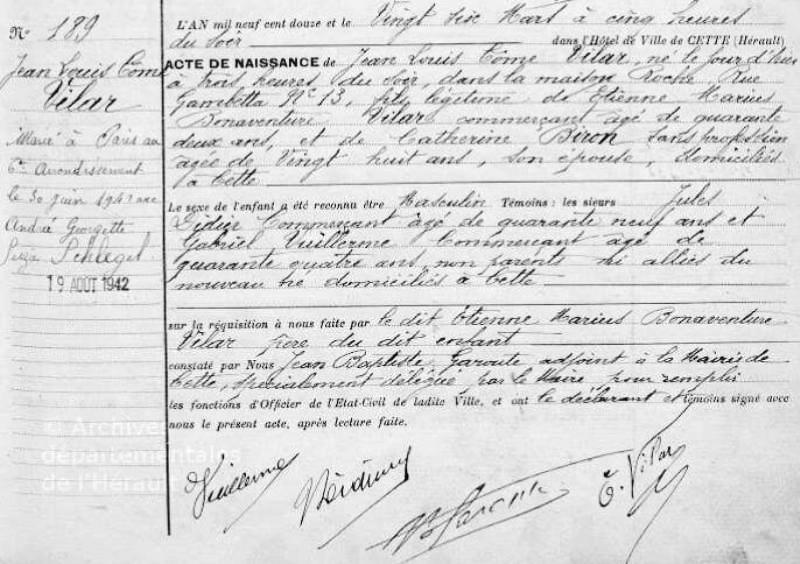 N° 189
Jean Louis Côme
Vilar
Marié à Paris au
6e Arrondissement
le 30 juin 1942 avec
André Georgette
Suza Schlegel
19 AOÛT 1942
L'AN mil neuf cent douze et le Vingt six Mars à cinq heures
du soir dans l'Hôtel de Ville de CETTE (Hérault)
ACTE DE NAISSANCE de Jean Louis Côme Vilar, né le jour d'hier
à trois heures du soir, dans la maison Roche, Rue
Gambetta N° 13, fils légitime de Etienne Marius
Bonaventure Vilar commerçant âgé de quarante
deux ans, et de Catherine Biron sans profession
âgée de Vingt huit ans, son épouse, domiciliés
à Cette
Le sexe de l'enfant a été reconnu être Masculin Témoins : les sieurs Jules
Didier Commerçant âgé de quarante neuf ans et
Gabriel Vuillerme Commerçant âgé de
quarante quatre ans, non parents ni alliés du
nouveau né domiciliés à Cette
sur la réquisition à nous faite par le dit Etienne Marius Bonaventure
Vilar père du dit enfant
constaté par Nous Jean Baptiste Garoute adjoint à la Mairie de
Cette, spécialement délégué par le Maire, pour remplir
les fonctions d'Officier de l'Etat-Civil de ladite Ville, et ont le déclarant et témoins signé avec
nous le présent acte, après lecture faite.
© Archives
départementales
de l'Hérault
Vuillerme
E. Vilar